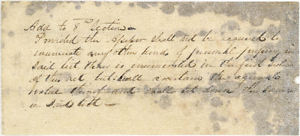 Add to 8th Section
Provided the assessor shall not be required to
enumerate any other kinds of personal property in
said list than is enumerated in the first section
of this act but shall ascertain the aggregate
value thereof and shall set down the same
in said list